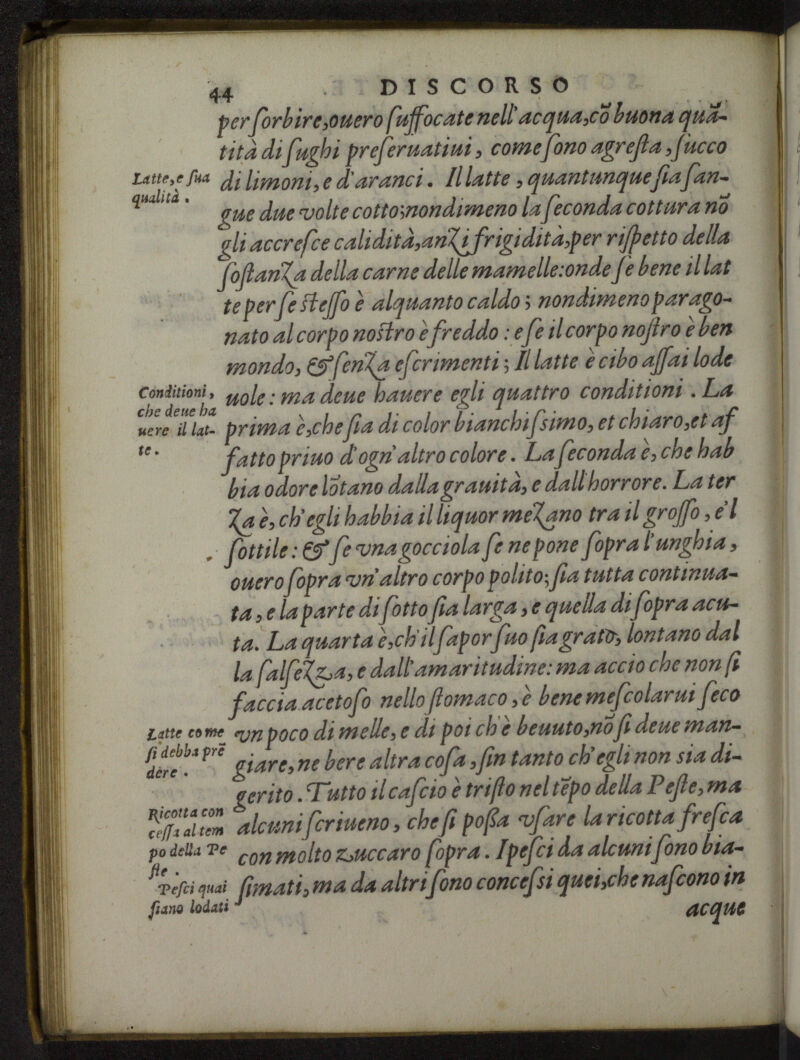 44 DISCORSO
per ſorbire,ouero ſuffocate nell'acqua,cõ buona quã-
tità di ſughi preſeruatiui, come ſono agreſta, ſucco
Latte,e ſua
qualità.
di limoni, e d'aranci. Il latte, quantunque ſia ſan-
gue due volte cotto;nondimeno la ſeconda cottura nõ
gli accreſce calidità,anzi frigidità,per riſpetto della
ſoſtanza della carne delle mamelle:onde ſe bene il lat
te per ſe ſteſſo è alquanto caldo; nondimeno parago-
nato al corpo noſtro è freddo: e ſe il corpo noſtro è ben
mondo, & ſenza eſcrimenti; Il latte è cibo aſſai lode
Conditioni,
che deue ha
uere il lat-
te.
uole: ma deue hauere egli quattro conditioni. La
prima è,che ſia di color bianchiſsimo, et chiaro,et af
fatto priuo d'ogn'altro colore. La ſeconda è, che hab
bia odore lõtano dalla grauità, e dall'horrore. La ter
za è, ch'egli habbia il liquor mezano tra il groſſo, e'l
ſottile: & ſe vna gocciola ſe ne pone ſopra l'unghia,
ouero ſopra vn'altro corpo polito;ſia tutta continua-
ta, e la parte di ſotto ſia larga, e quella di ſopra acu-
ta. La quarta è,ch'il ſapor ſuo ſia grato, lontano dal
la ſalſezza, e dall'amaritudine: ma accio che non ſi
faccia acetoſo nello ſtomaco, è bene meſcolarui ſeco
Latte come
ſi debba prẽ
dere.
vn poco di melle, e di poi ch'è beuuto,nõ ſi deue man-
giare, ne bere altra coſa, ſin tanto ch'egli non sia di-
gerito. Tutto il caſcio è triſto nel tẽpo della Peſte, ma
Ricotta con
ceſſa al tem
po della Pe
ſte.
alcuni ſcriueno, che ſi poſſa vſare la ricotta freſca
con molto zuccaro ſopra. I peſci da alcuni ſono bia-
Peſci quai
ſiano lodati
ſimati, ma da altri ſono conceſsi quei,che naſcono in
acque